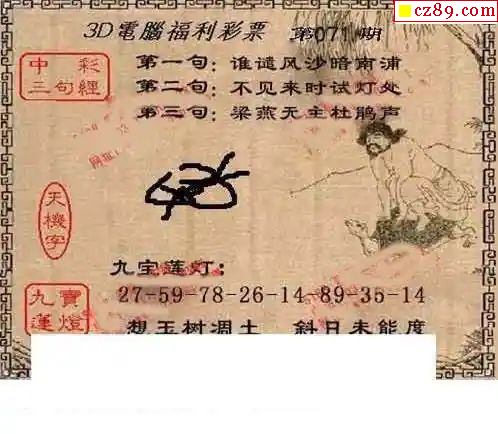 cz89.com
3D電腦福利彩票 第071期
中彩
三句經
第一句：谁谴风沙暗南浦
第二句：不见来时试灯处
第三句：梁燕无主杜鹃声
天機字
九宝莲灯：
九寶
蓮燈
27-59-78-26-14 89-35-14
想玉树凋土 斜日未能度